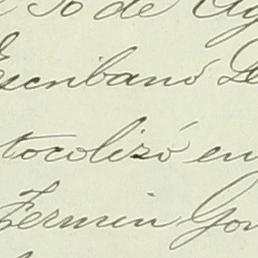 de
Escribano
tocolizó en
Fermin Gon